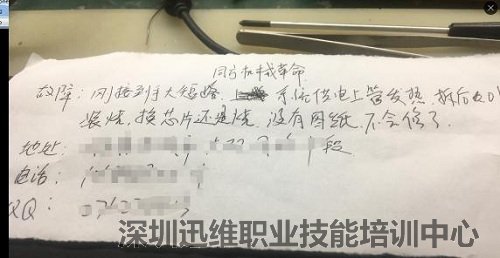 同方机械革命
故障：刚接到手大短路 系统供电上管发热 拆后
装烧，换芯片还是烧 没有图纸 不会修了
地址：
段
电话：
QQ：
深圳迅维职业技能培训中心